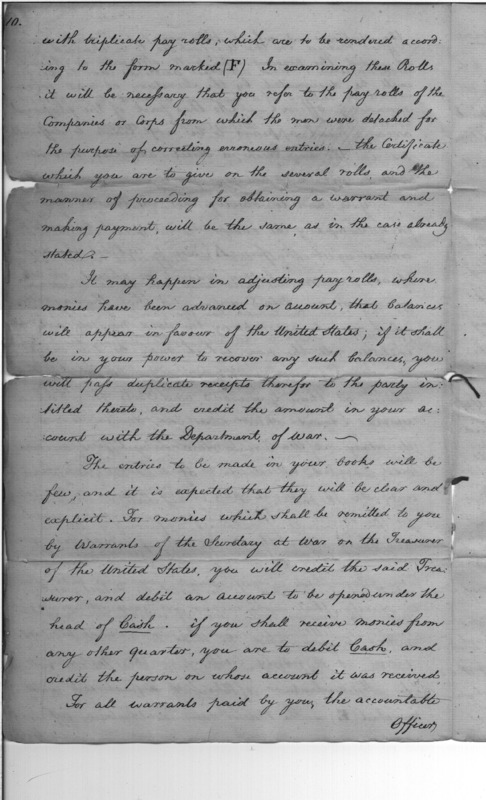 10.
with triplicate pay rolls, which are to be rendered accord:
ing to the form marked (F) In examining these Rolls
it will be necessary that you refer to the pay rolls of the
Companies or Corps from which the men were detached for
the purpose of correcting erroneous entries. — the Certificate
which you are to give on the several rolls, and the
manner of proceeding for obtaining a warrant and
making payment, will be the same as in the case already
stated. —
It may happen in adjusting pay rolls, where
monies have been advanced on account, that balances
will appear in favour of the United States; if it shall
be in your power to recover any such balances, you
will pass duplicate receipts therefor to the party in:
titled thereto, and credit the amount in your ac:
count with the Department of War. —
The entries to be made in your books will be
few, and it is expected that they will be clear and
explicit. For monies which shall be remitted to you
by Warrants of the Secretary at War on the Treasurer
of the United States, you will credit the said Trea:
surer, and debit an account to be opened under the
head of Cash. if you shall receive monies from
any other quarter, you are to debit Cash, and
credit the person on whose account it was received
For all warrants paid by you, the accountable
Officer,